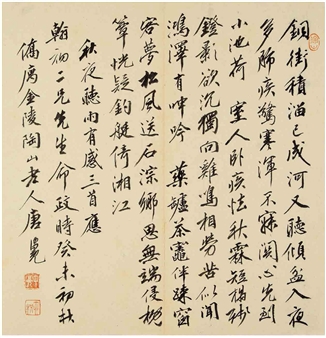 銅街積溜已成河又聽傾盆入夜
多肺疾驚寒渾不寐関心先到
小池荷 室人臥疾怯秋霖短榻
鐙影欲沉獨向雞鳴相勞苦似聞
鴻澤有呻吟 藥鑪茶竈伴疎窗
客夢松風送石淙鄉思無端侵枕
簟恍疑釣艇倚湘江
秋夜聽雨有感三首應
翰初二兄先生命政時癸未初秋
僑寓金陵陶山老人唐